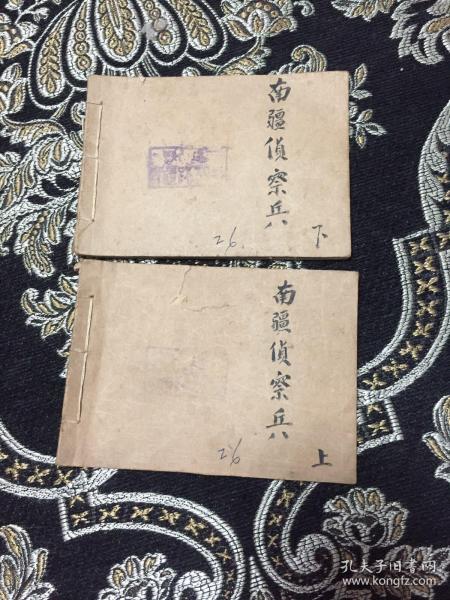 南疆偵察兵
下
26
南疆偵察兵
上
26
孔夫子旧书网
www.kongfz.com